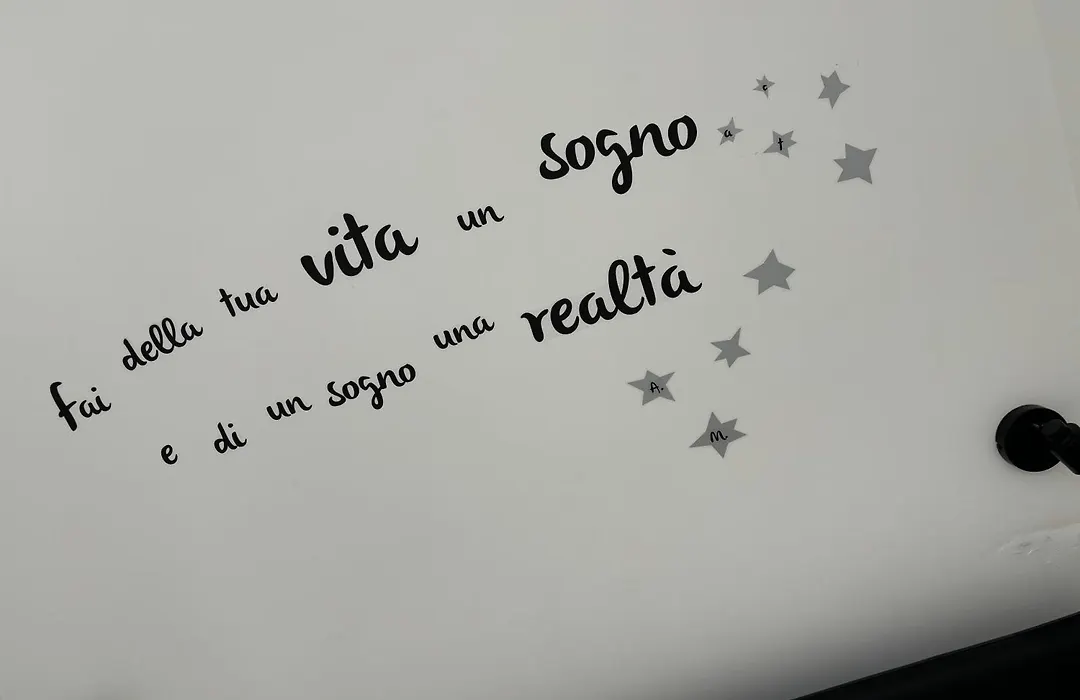 fai della tua vita un sogno
e di un sogno una realtà
c
a
t
A.
M